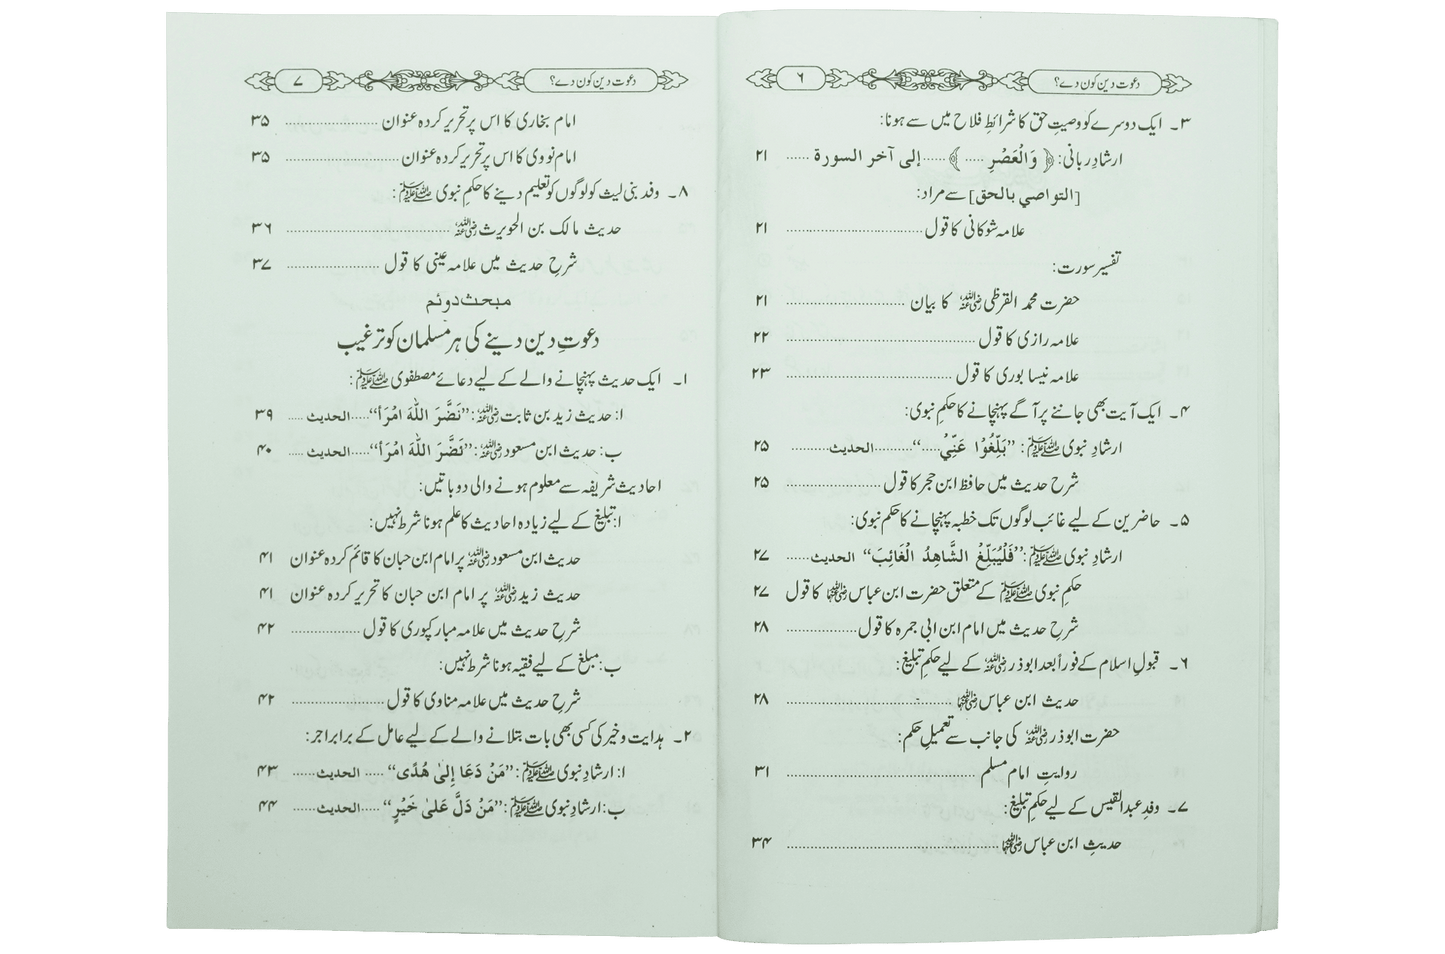 دعوت دین کون دے؟ ۶
۳۔ ایک دوسرے کو وصیتِ حق کا شرائطِ فلاح میں سے ہونا:
ارشادِ ربانی: ﴿ وَالْعَصْرِ ..... ﴾ ...... إلى آخر السورة ...... ۲۱
[التواصي بالحق] سے مراد:
علامہ شوکانی کا قول ...... ۲۱
تفسیر سورت:
حضرت محمد القرظی رضی اللہ عنہ کا بیان ...... ۲۱
علامہ رازی کا قول ...... ۲۲
علامہ نیسا بوری کا قول ...... ۲۳
۴۔ ایک آیت بھی جاننے پر آگے پہنچانے کا حکمِ نبوی:
ارشادِ نبوی ﷺ: ”بَلِّغُوْا عَنِّيْ.....“ ......... الحدیث ......... ۲۵
شرح حدیث میں حافظ ابن حجر کا قول ...... ۲۵
۵۔ حاضرین کے لیے غائب لوگوں تک خطبہ پہنچانے کا حکم نبوی:
ارشادِ نبوی ﷺ: ”فَلْيُبَلِّغْ الشَّاهِدُ الْغَائِبَ“ الحدیث ...... ۲۷
حکمِ نبوی ﷺ کے متعلق حضرت ابن عباس رضی اللہ عنہما کا قول ۲۷
شرح حدیث میں امام ابن ابی جمرہ کا قول ...... ۲۸
۶۔ قبولِ اسلام کے فوراً بعد ابوذر رضی اللہ عنہ کے لیے حکمِ تبلیغ:
حدیث ابن عباس رضی اللہ عنہما ...... ۲۸
حضرت ابوذر رضی اللہ عنہ کی جانب سے تعمیلِ حکم:
روایتِ امام مسلم ...... ۳۱
۷۔ وفدِ عبدالقیس کے لیے حکمِ تبلیغ:
حدیثِ ابن عباس رضی اللہ عنہما ...... ۳۴
دعوت دین کون دے؟ ۷
امام بخاری کا اس پر تحریر کردہ عنوان ...... ۳۵
امام نووی کا اس پر تحریر کردہ عنوان ...... ۳۵
۸۔ وفد بنی لیث کو لوگوں کو تعلیم دینے کا حکمِ نبوی ﷺ:
حدیث مالک بن الحویرث رضی اللہ عنہ ...... ۳۶
شرحِ حدیث میں علامہ عینی کا قول ...... ۳۷
مبحث دوئم
دعوتِ دین دینے کی ہر مسلمان کو ترغیب
۱۔ ایک حدیث پہنچانے والے کے لیے دعائے مصطفوی ﷺ:
ا: حدیث زید بن ثابت رضی اللہ عنہ: ”نَضَّرَ اللّٰهَ امْرَأً“ ..... الحدیث ..... ۳۹
ب: حدیث ابن مسعود رضی اللہ عنہ: ”نَضَّرَ اللّٰهَ امْرَأً“ ..... الحدیث ..... ۴۰
احادیث شریفہ سے معلوم ہونے والی دو باتیں:
ا: تبلیغ کے لیے زیادہ احادیث کا علم ہونا شرط نہیں:
حدیث ابن مسعود رضی اللہ عنہ پر امام ابن حبان کا قائم کردہ عنوان ۴۱
حدیث زید رضی اللہ عنہ پر امام ابن حبان کا تحریر کردہ عنوان ۴۱
شرحِ حدیث میں علامہ مبارکپوری کا قول ...... ۴۲
ب: مبلغ کے لیے فقیہ ہونا شرط نہیں:
شرحِ حدیث میں علامہ مناوی کا قول ...... ۴۲
۲۔ ہدایت و خیر کی کسی بھی بات بتلانے والے کے لیے عامل کے برابر اجر:
ا: ارشادِ نبوی ﷺ: ”مَنْ دَعَا إِلىٰ هُدًى“ ..... الحدیث ...... ۴۳
ب: ارشادِ نبوی ﷺ: ”مَنْ دَلَّ عَلىٰ خَيْرٍ“ ..... الحدیث ...... ۴۴